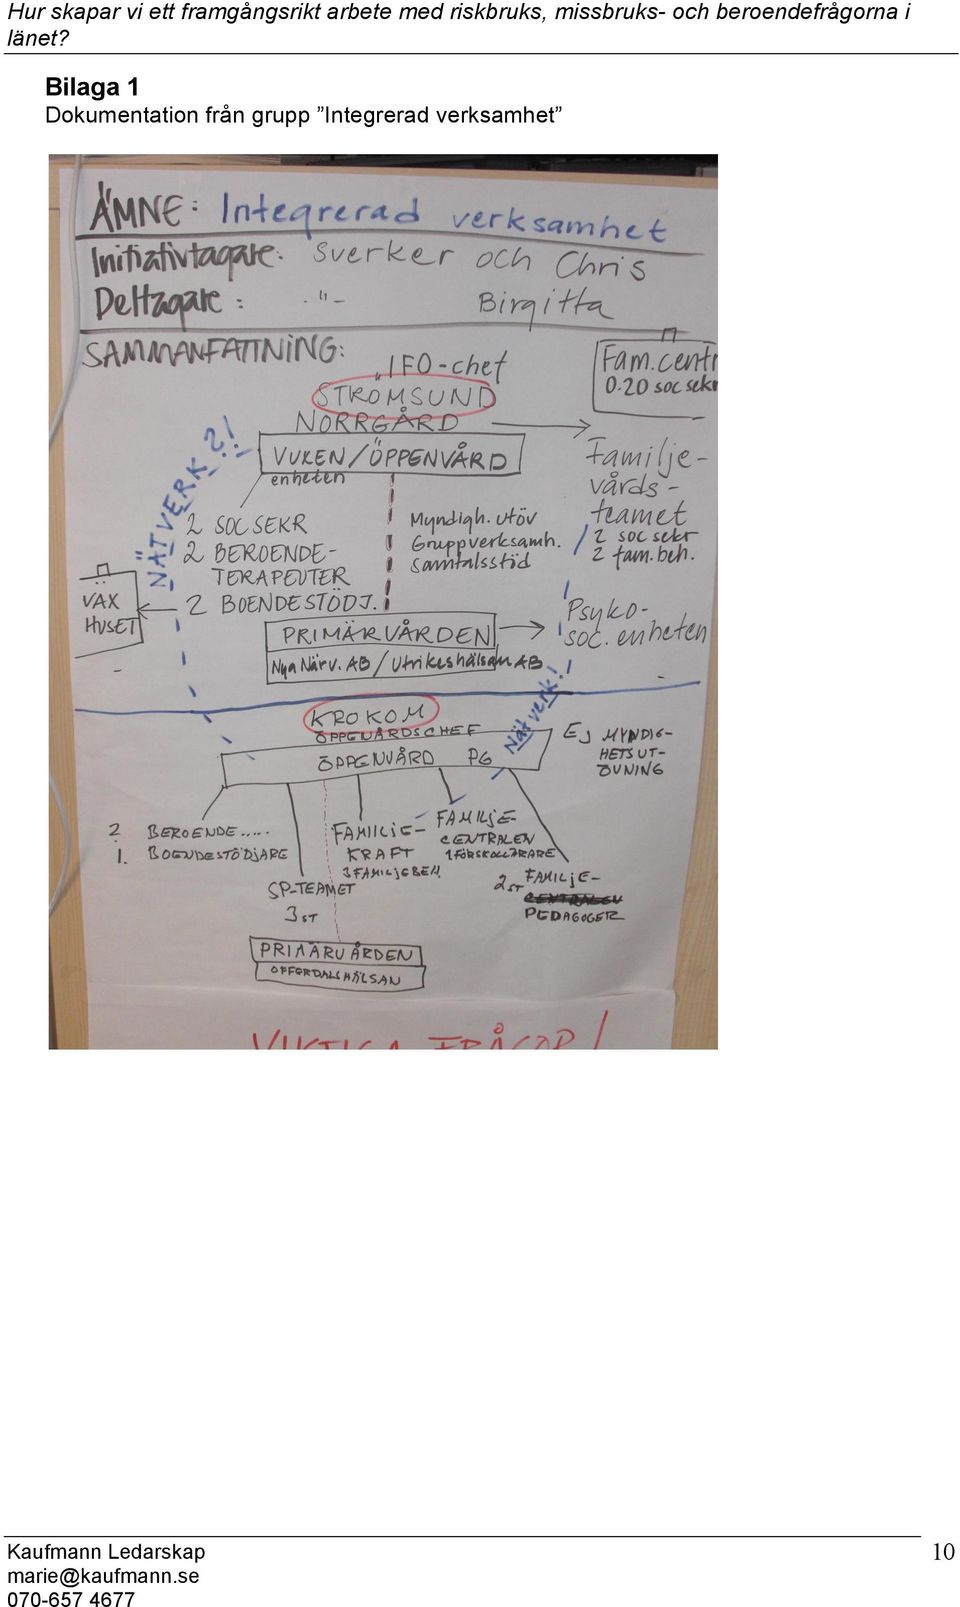 Hur skapar vi ett framgångsrikt arbete med riskbruks, missbruks- och beroendefrågorna i
länet?
Bilaga 1
Dokumentation från grupp ”Integrerad verksamhet”
ÄMNE: Integrerad verksamhet
Initiativtagare: Sverker och Chris
Deltagare: -"- Birgitta
SAMMANFATTNING:
IFO-chef
STRÖMSUND
NORRGÅRD
VUXEN/ÖPPENVÅRD
enheten
Fam.centr
0.20 soc sekr
NÄTVERK?!
Familje-
vårds-
teamet
2 soc sekr
2 fam.beh.
2 SOC SEKR
2 BEROENDE-
TERAPEUTER
2 BOENDESTÖDJ.
Myndigh. utöv
Gruppverksamh.
Samtalsstöd
VÄX
HUSET
PRIMÄRVÅRDEN
Nya Närv. AB / Utrikeshälsan AB
Psyko-
soc. enheten
Nätverk!
KROKOM
ÖPPENVÅRDSCHEF
ÖPPENVÅRD PG
EJ MYNDIG-
HETSUT-
ÖVNING
2 BEROENDE.....
1. BOENDESTÖDJARE
SP-TEAMET
3 ST
FAMILJE-
KRAFT
3 FAMILJEBEH.
FAMILJE-
CENTRALEN
1 FÖRSKOLLÄRARE
2 ST FAMILJE-
CENTRALEN
PEDAGOGER
PRIMÄRVÅRDEN
OFFERDALSHÄLSAN
VIKTIGA FRÅGOR!
Kaufmann Ledarskap
marie@kaufmann.se
070-657 4677
10